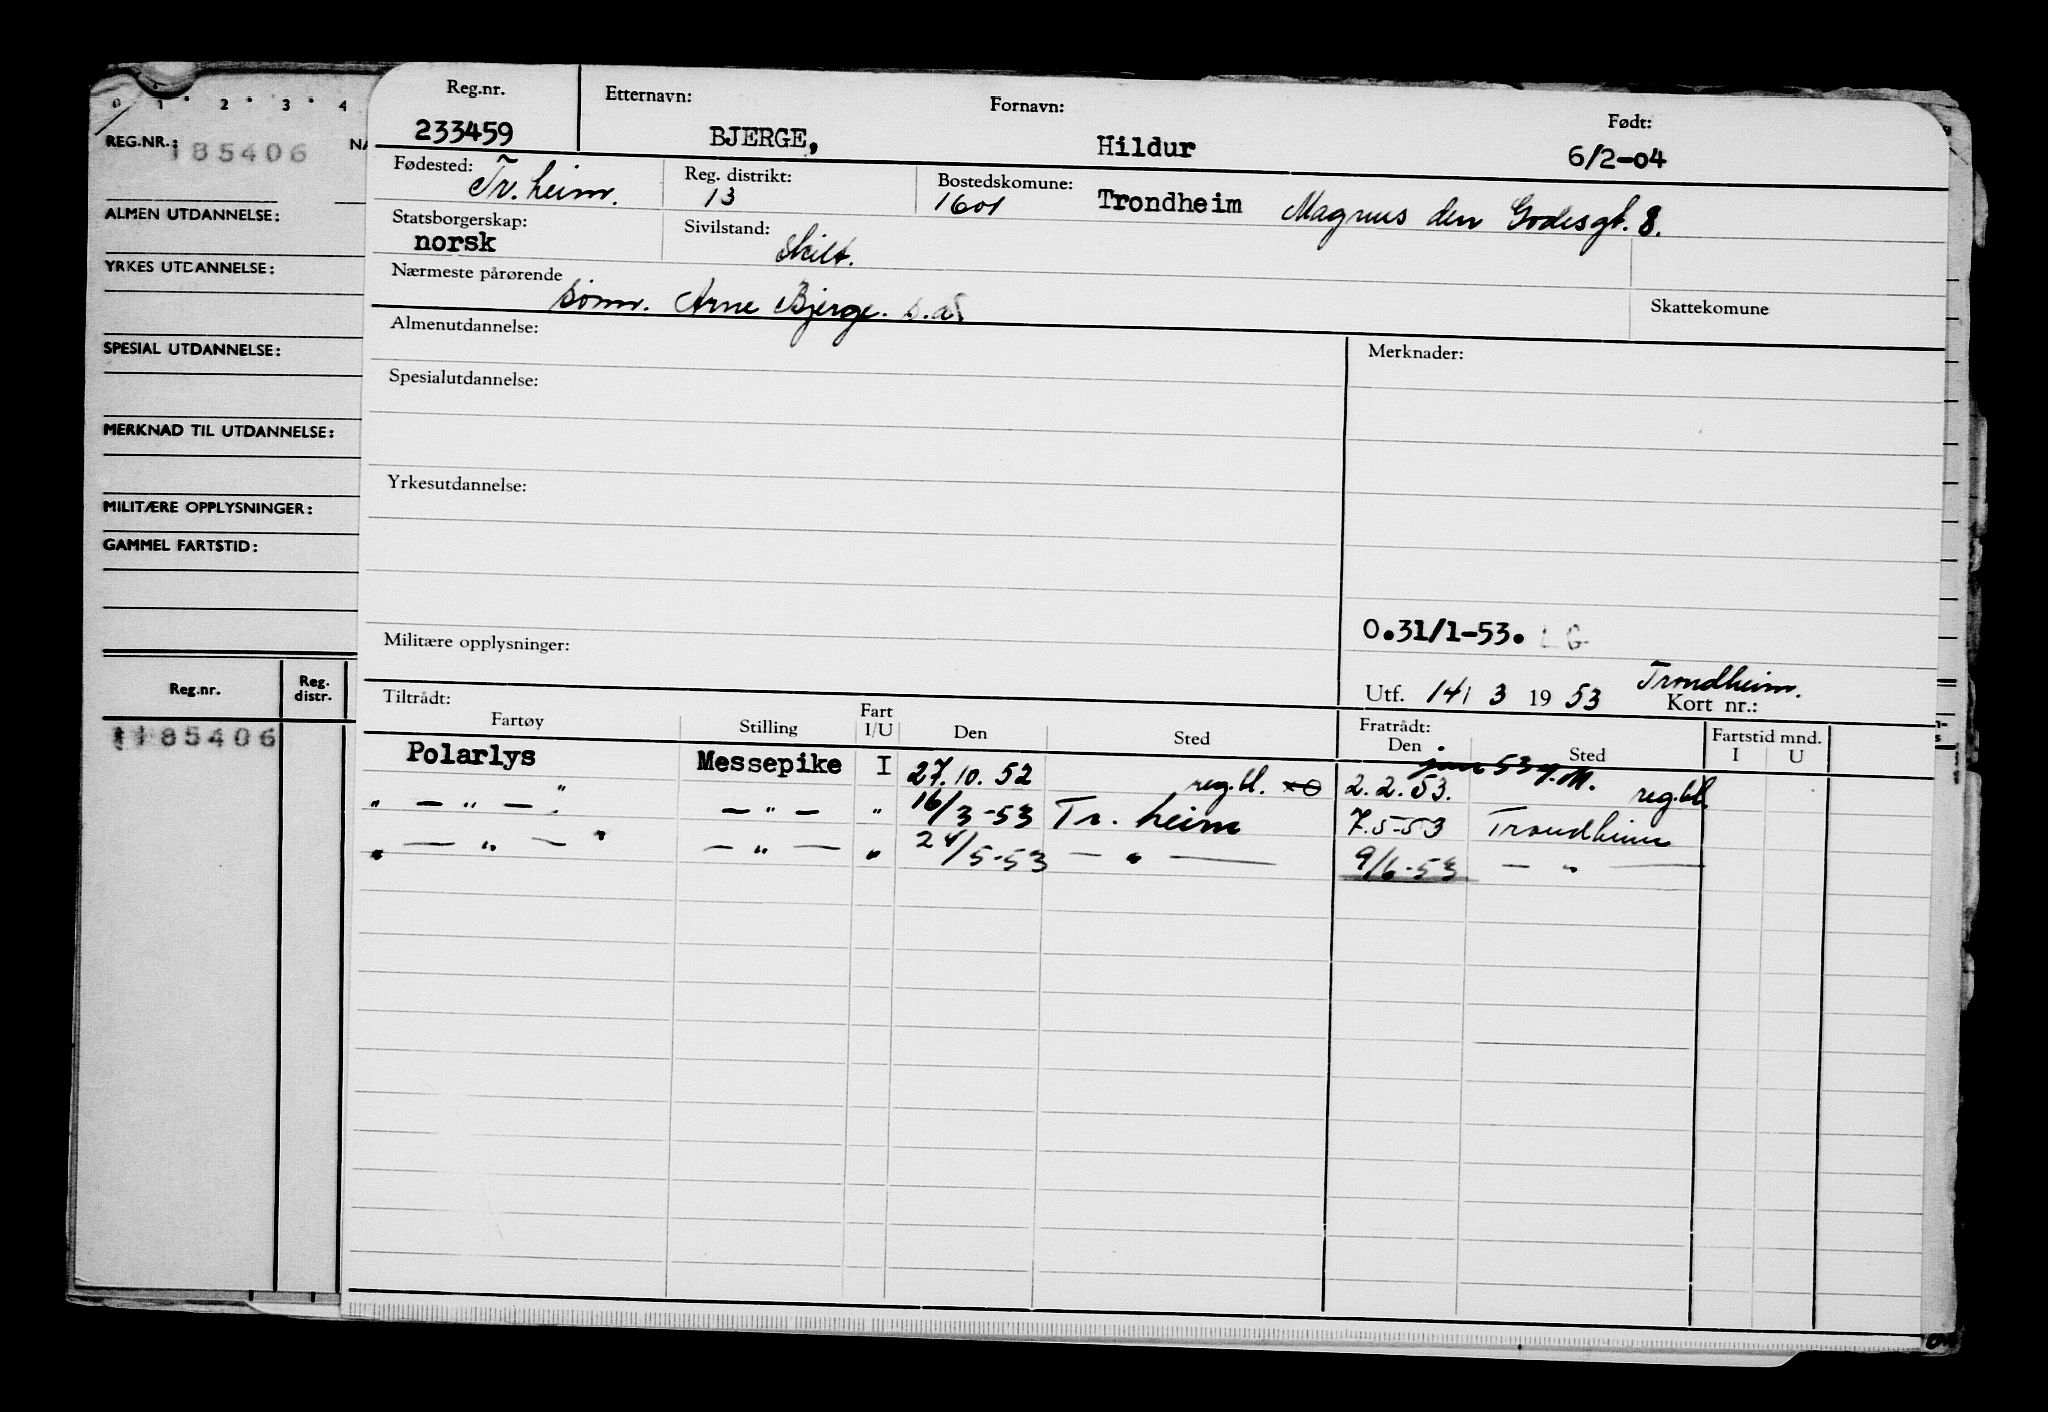 0 1 2 3 4
REG.NR.: 185406 NA
ALMEN UTDANNELSE:
YRKES UTDANNELSE:
SPESIAL UTDANNELSE:
MERKNAD TIL UTDANNELSE:
MILITÆRE OPPLYSNINGER:
GAMMEL FARTSTID:
Reg.nr. Reg. distr.
185406
Reg.nr. Etternavn: Fornavn: Født:
233459 BJERGE, Hildur 6/2-04
Fødested: Tr.heim. Reg. distrikt: 13 Bostedskomune: 1601 Trondheim Magnus den Godesgt. 8.
Statsborgerskap: norsk Sivilstand: skilt.
Nærmeste pårørende sønn. Arne Bjerge. s.a. Skattekomune
Almenutdannelse: Merknader:
Spesialutdannelse:
Yrkesutdannelse:
O.31/1-53. LG
Militære opplysninger:
Utf. 14/ 3 19 53 Trondheim. Kort nr.:
Tiltrådt: Fratrådt: Fartstid mnd.
Fartøy Stilling Fart I/U Den Sted Den Sted I U
jan 53 g.M.
Polarlys Messepike I 27.10.52 reg.bl. 2.2.53. reg.bl.
" — " — " — " — " 16/3-53 Tr. heim 7.5-53 Trondheim
" — " — " — " — " 24/5-53 — " — 9/6-53 — " —